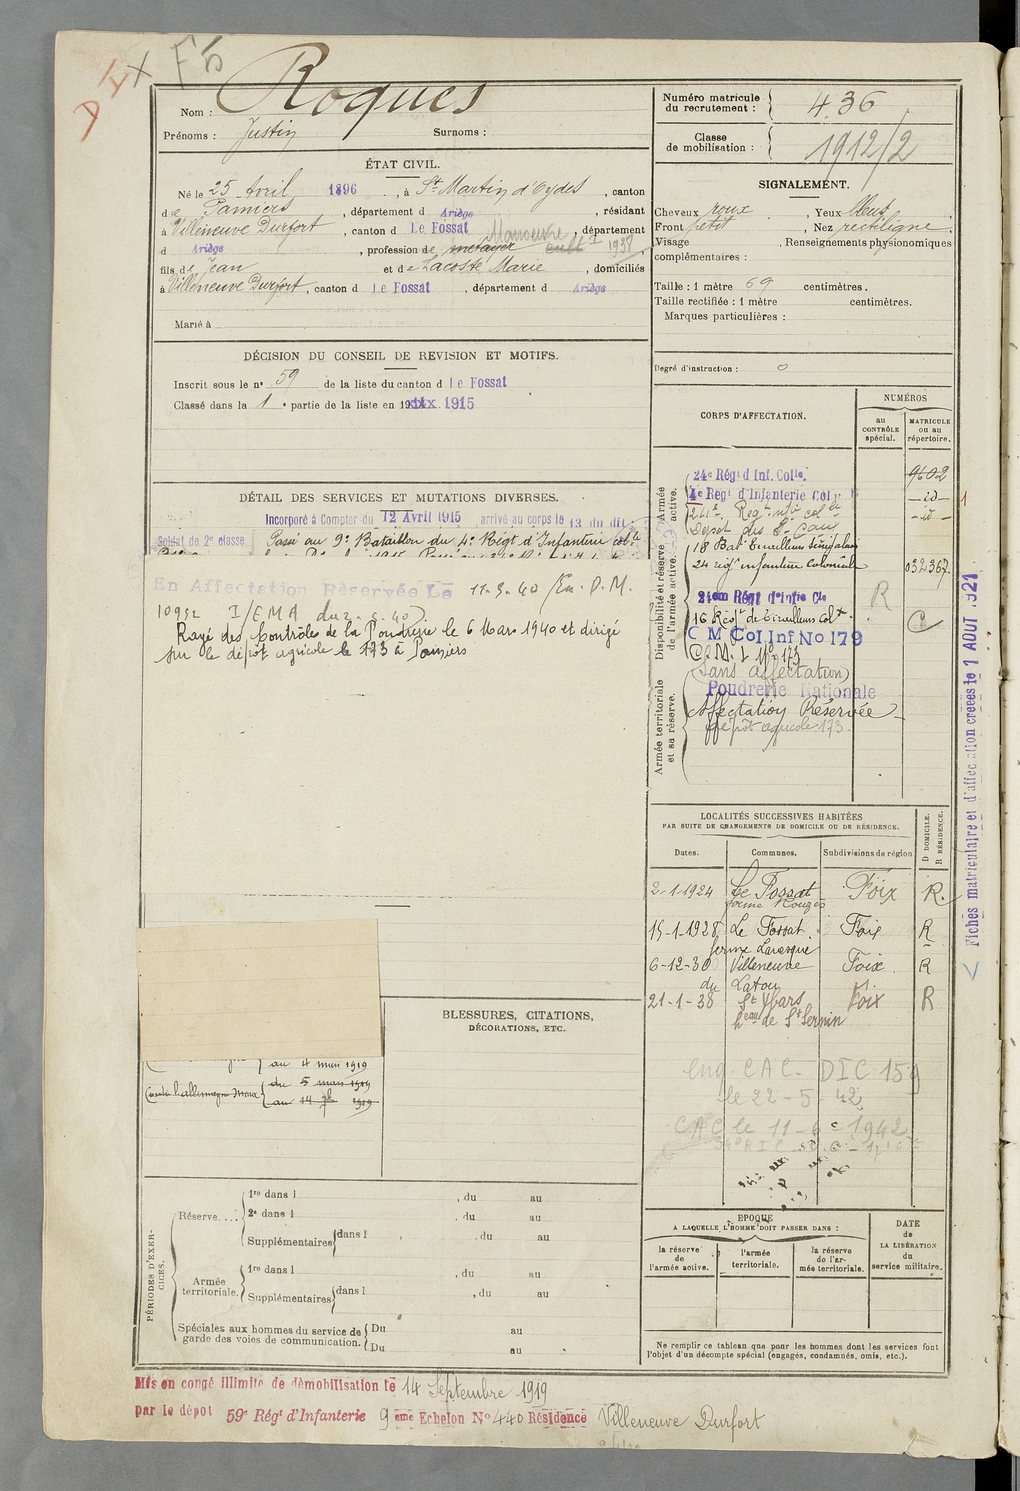 Nom : Roques
Prénoms : Justin Surnoms :
Numéro matricule du recrutement : 436
Classe de mobilisation : 1912/2
ÉTAT CIVIL.
Né le 25 Avril 1896, à St Martin d'Oydes, canton
de Pamiers, département d Ariège, résidant
à Villeneuve Durfort, canton d Le Fossat, département
d Ariège, profession de métayer cult 1938
fils de Jean et de Lacoste Marie, domiciliés
à Villeneuve Durfort, canton d Le Fossat, département d Ariège
Marié à
SIGNALEMENT.
Cheveux roux, Yeux bleus,
Front petit, Nez rectiligne,
Visage , Renseignements physionomiques
complémentaires :
Taille : 1 mètre 69 centimètres.
Taille rectifiée : 1 mètre centimètres.
Marques particulières :
Degré d'instruction : 0
DÉCISION DU CONSEIL DE REVISION ET MOTIFS.
Inscrit sous le n° 59 de la liste du canton d Le Fossat
Classé dans la 1e partie de la liste en 1915
DÉTAIL DES SERVICES ET MUTATIONS DIVERSES.
Incorporé à Compter du 12 Avril 1915 arrivé au corps le 13 du dit
Soldat de 2e classe Passé au 9e Bataillon du 4e Régt d'Infanterie colle
En Affectation Réservée Le 11-3-40
10952 I/EMA du 2-2-40
Rayé des Contrôles de la Poudrerie le 6 Mars 1940 et dirigé
sur le dépôt agricole le 173 à Pamiers
CORPS D'AFFECTATION.
NUMÉROS
au CONTRÔLE spécial.
MATRICULE ou au répertoire.
Armée active.
24e Régt d Inf. Colle. 9602
4e Regt d'Infanterie Col -id-
24e Regt infie colle -id-
Disponibilité et réserve de l'armée active.
18 Bat Tirailleurs Sénégalais
24 régt infanterie coloniale 032367.
24em Régt d'Infie Cle R
16 Régt de Tirailleurs Colx C
C M Col Inf No 179
C.M.I. No 173
(Sans affectation)
Armée territoriale et sa réserve.
Poudrerie Nationale
Affectation Réservée
dépôt agricole 173
Fiches matriculaire et d'affectation créées le 1 AOUT 1921
LOCALITÉS SUCCESSIVES HABITÉES
PAR SUITE DE CHANGEMENTS DE DOMICILE OU DE RÉSIDENCE.
Dates. Communes. Subdivisions de région D DOMICILE. R RÉSIDENCE.
2-1-1924 Le Fossat Foix R.
ferme Rouzès
15-1-1928 Le Fossat Foix R
ferme Larasque
6-12-30 Villeneuve Foix R
du Latou
21-1-38 St Ybars Foix R
heau de St Sernin
CAC. DIC 159
le 22-5-42
CAC le 11-6-1942
BLESSURES, CITATIONS,
DÉCORATIONS, ETC.
au 4 mars 1919
du 5 mars 1919
au 14 7bre 1919
PÉRIODES D'EXERCICES.
Réserve....
1re dans l , du au
2e dans l , du au
Supplémentaires dans l , du au
Armée territoriale.
1re dans l , du au
Supplémentaires dans l , du au
Spéciales aux hommes du service de garde des voies de communication.
Du au
Du au
EPOQUE
A LAQUELLE L'HOMME DOIT PASSER DANS :
la réserve de l'armée active.
l'armée territoriale.
la réserve de l'armée territoriale.
DATE de LA LIBÉRATION du service militaire.
Ne remplir ce tableau que pour les hommes dont les services font
l'objet d'un décompte spécial (engagés, condamnés, omis, etc.).
Mis en congé illimité de démobilisation le 14 Septembre 1919
par le dépôt 59e Régt d'Infanterie 9 eme Echelon No 440 Résidence Villeneuve Durfort